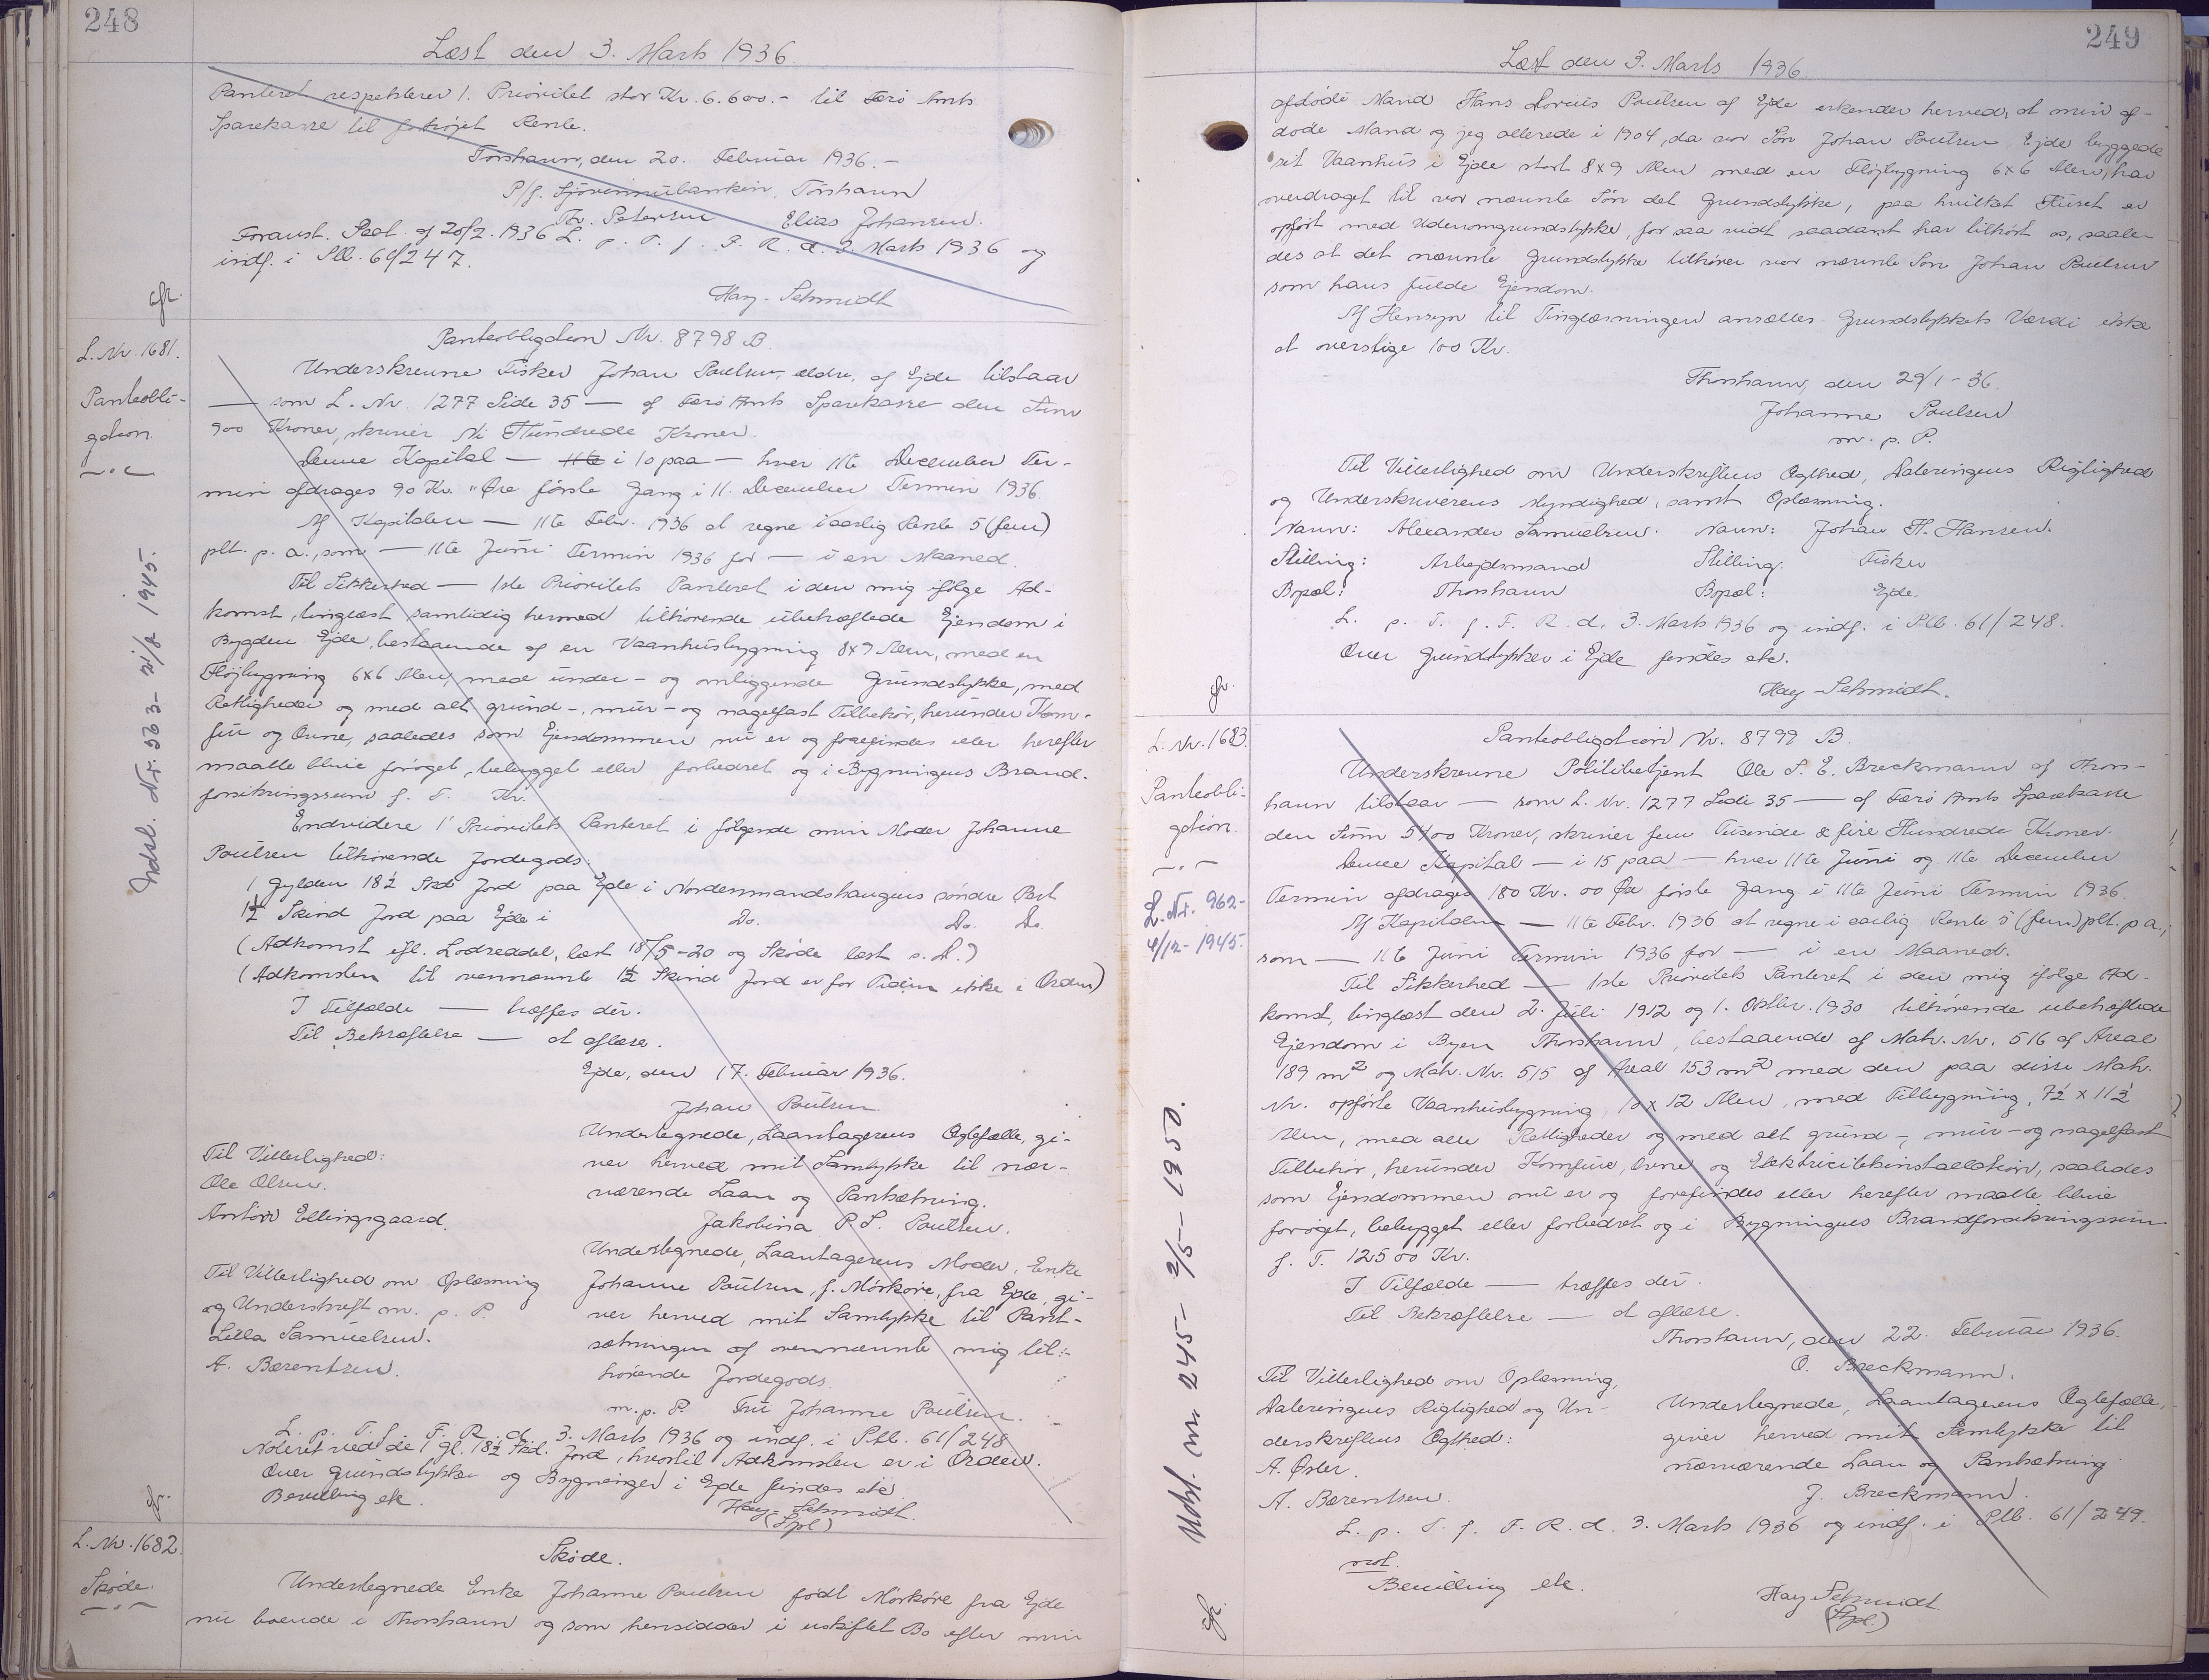 248
Læst den 3. Marts 1936.
Panteret respekterer 1. Prioritet stor Kr. 6.600.- til Færø Amts
Sparekasse til forhøjet Rente.
Tórshavn, den 20. Februar 1936.-
P/f. Sjóvinnubankin, Tórshavn
Th. Petersen Elias Johansen.
Foranst. Paat. af 20/2. 1936 L. p. T. f. F. R. d. 3. Marts 1936 og
indf. i Ptb. 61/247.
Hay-Schmidt
cfr.
L. Nr. 1681.
Panteobli-
gation
Panteobligation Nr. 8798 B.
Underskrevne Fisker Johan Poulsen, ældre, af Ejde tilstaar
— som L. Nr. 1277 Side 35 — af Færø Amts Sparekasse den Sum
900 Kroner, skriver Ni Hundrede Kroner.
Denne Kapital — 11te i 10 paa — hver 11te December Ter-
min afdrages 90 Kr. " Øre første Gang i 11. December Termin 1936.
Af Kapitalen — 11te Febr. 1936 at regne i aarlig Rente 5 (fem)
pct. p. a., som — 11te Juni Termin 1936 for — i en Maaned.
Til Sikkerhed — 1ste Prioritets Panteret i den mig ifølge Ad-
komst, tinglæst samtidig hermed tilhørende ubehæftede Ejendom i
Bygden Ejde, bestaaende af en Vaanhusbygning 8x9 Alen, med en
Fløjbygning 6x6 Alen, med under- og omliggende Grundstykke, med
Rettigheder og med alt grund-, mur- og nagelfast Tilbehør, herunder Kom-
fur og Ovne, saaledes som Ejendommen nu er og forefindes eller herefter
maatte blive forøget, bebygget eller forbedret og i Bygningens Brand-
forsikringssum f. T. Kr.
Endvidere 1' Prioritets Panteret i følgende min Moder Johanne
Poulsen tilhørende Jordegods:
1 Gylden 18½ Skd Jord paa Ejde i Nordenmandshaugens søndre Part
1½ Skind Jord paa Ejde i Do. Do. Do.
(Adkomst efl. Lodseddel, læst 18/5-20 og Skøde læst s. D.)
(Adkomsten til ovennævnte 1½ Skind Jord er for Tiden ikke i Orden)
I Tilfælde — træffes dér.
Til Bekræftelse — at aflæse.
Ejde, den 17. Februar 1936.
Johan Poulsen
Til Vitterlighed:
Ole Olsen.
Antón Ellingsgaard.
Undertegnede, Laantagerens Ægtefælle, gi-
ver herved mit Samtykke til nær-
værende Laan og Pantsætning.
Jakobina P. S. Poulsen.
Til Vitterlighed om Oplæsning
og Underskrift m. p. P.
Lilla Samuelsen.
A. Bærentsen.
Undertegnede, Laantagerens Moder, Enke
Johanne Poulsen, f. Mørkøre, fra Ejde, gi-
ver herved mit Samtykke til Pant-
sætningen af ovennævnte mig til-
hørende Jordegods.
m. p. P. Fru Johanne Poulsen.
L. p. T. f. F. R. d. 3. Marts 1936 og indf. i Ptb. 61/248
Noteret ved de 1 gl. 18½ Skd. Jord, hvortil Adkomsten er i Orden.
Over Grundstykker og Bygninger i Ejde findes etc.
Bevilling etc.
Hay-Schmidt.
(Spl)
cfr.
Udsl. Nr. 563- 21/8 1945.
L. Nr. 1682.
Skøde.
Skøde.
Undertegnede Enke Johanne Poulsen født Mørkøre fra Ejde
nu boende i Thorshavn og som hensidder i uskiftet Bo efter min
249
Læst den 3. Marts 1936.
afdøde Mand Hans Dorius Poulsen af Ejde erkender herved, at min af-
døde Mand og jeg allerede i 1904, da vor Søn Johan Poulsen Ejde byggede
sit Vaanhus i Ejde stort 8x9 Alen med en Fløjbygning 6x6 Alen, har
overdraget til vor nævnte Søn det Grundstykke, paa hvilket Huset er
opført med Udenomgrundstykke, for saa vidt saadant har tilhørt os, saale-
des at det nævnte Grundstykke tilhører vor nævnte Søn Johan Poulsen
som hans fulde Ejendom.
Af Hensyn til Tinglæsningen ansættes Grundstykkets Værdi ikke
at overstige 100 Kr.
Thorshavn, den 29/1-36.
Johanne Poulsen
m. p. P.
Til Vitterlighed om Underskriftens Ægthed, Dateringens Rigtighed
og Underskriverens Myndighed, samt Oplæsning.
Navn: Alexander Samuelsen. Navn: Johan H. Hansen.
Stilling: Arbejdsmand Stilling: Fisker
Bopæl: Thorshavn Bopæl: Ejde.
L. p. T. f. F. R. d. 3. Marts 1936 og indf. i Ptb. 61/248.
Over Grundstykker i Ejde findes etc.
Hay-Schmidt.
cfr.
L. Nr. 1683.
Panteobli-
gation.
L. Nr. 962-
4/12-1945.
Panteobligation Nr. 8799 B.
Underskrevne Politibetjent Ole S. E. Breckmann af Thors-
havn tilstaar — som L. Nr. 1277 Side 35 — af Færø Amts Sparekasse
den Sum 5400 Kroner, skriver fem Tusinde & fire Hundrede Kroner.
Denne Kapital — i 15 paa — hver 11te Juni og 11te December
Termin afdrages 180 Kr. 00 Øre første Gang i 11te Juni Termin 1936.
Af Kapitalen — 11te Febr. 1936 at regne i aarlig Rente 5 (fem) pct. p. a.,
som — 11te Juni Termin 1936 for — i en Maaned.
Til Sikkerhed — 1ste Prioritets Panteret i den mig ifølge Ad-
komst, tinglæst den 2. Juli 1912 og 1. Oktbr. 1930 tilhørende ubehæftede
Ejendom i Byen Thorshavn, bestaaende af Matr. Nr. 516 af Areal
189 m² og Matr. Nr. 515 af Areal 153 m² med den paa disse Matr.
Nr. opførte Vaanhusbygning, 10 x 12 Alen, med Tilbygning, 7½ x 11½
Alen, med alle Rettigheder og med alt grund-, mur- og nagelfast
Tilbehør, herunder Komfure, Ovne og Elektricitetsinstallation, saaledes
som Ejendommen nu er og forefindes eller herefter maatte blive
forøget, bebygget eller forbedret og i Bygningens Brandforsikringssum
f. T. 12500 Kr.
I Tilfælde — træffes dér.
Til Bekræftelse — at aflæse.
Thorshavn, den 22. Februar 1936.
O. Breckmann.
Til Vitterlighed om Oplæsning,
Dateringens Rigtighed og Un-
derskriftens Ægthed:
A. Øster.
A. Bærentsen.
Undertegnede, Laantagerens Ægtefælle,
giver herved mit Samtykke til
nærværende Laan og Pantsætning
J. Breckmann.
L. p. T. f. F. R. d. 3. Marts 1936 og indf. i Ptb. 61/249.
Bevilling etc.
Hay Schmidt.
(Spl.)
cfr.
Udsl. nr. 245- 2/5-1950.